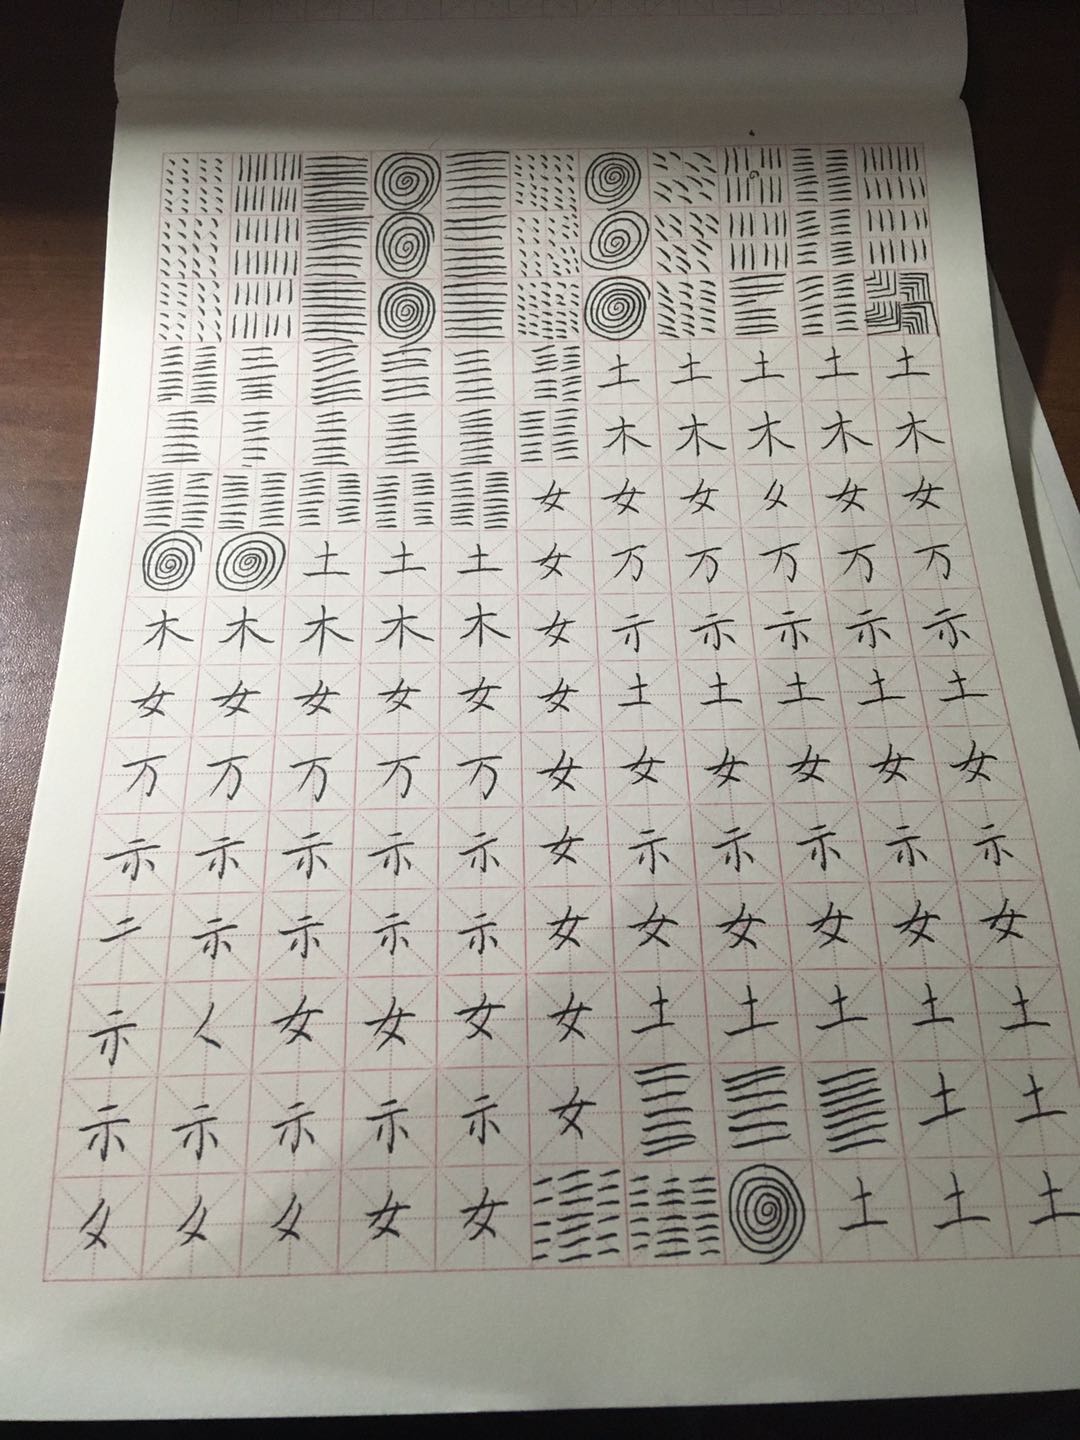 土 土 土 土 土
木 木 木 木 木
女 女 女 女 女
土 土 土 女 万 万 万 万 万
木 木 木 木 木 女 亍 示 示 示 示
女 女 女 女 女 女 土 土 土 土 土
万 万 万 万 万 女 女 女 女 女 女
示 示 示 示 示 女 示 示 示 示 示
二 示 示 示 示 女 女 女 女 女 女
示 女 女 女 女 土 土 土 土 土
示 示 示 示 示 女 土 土
女 女 土 土 土